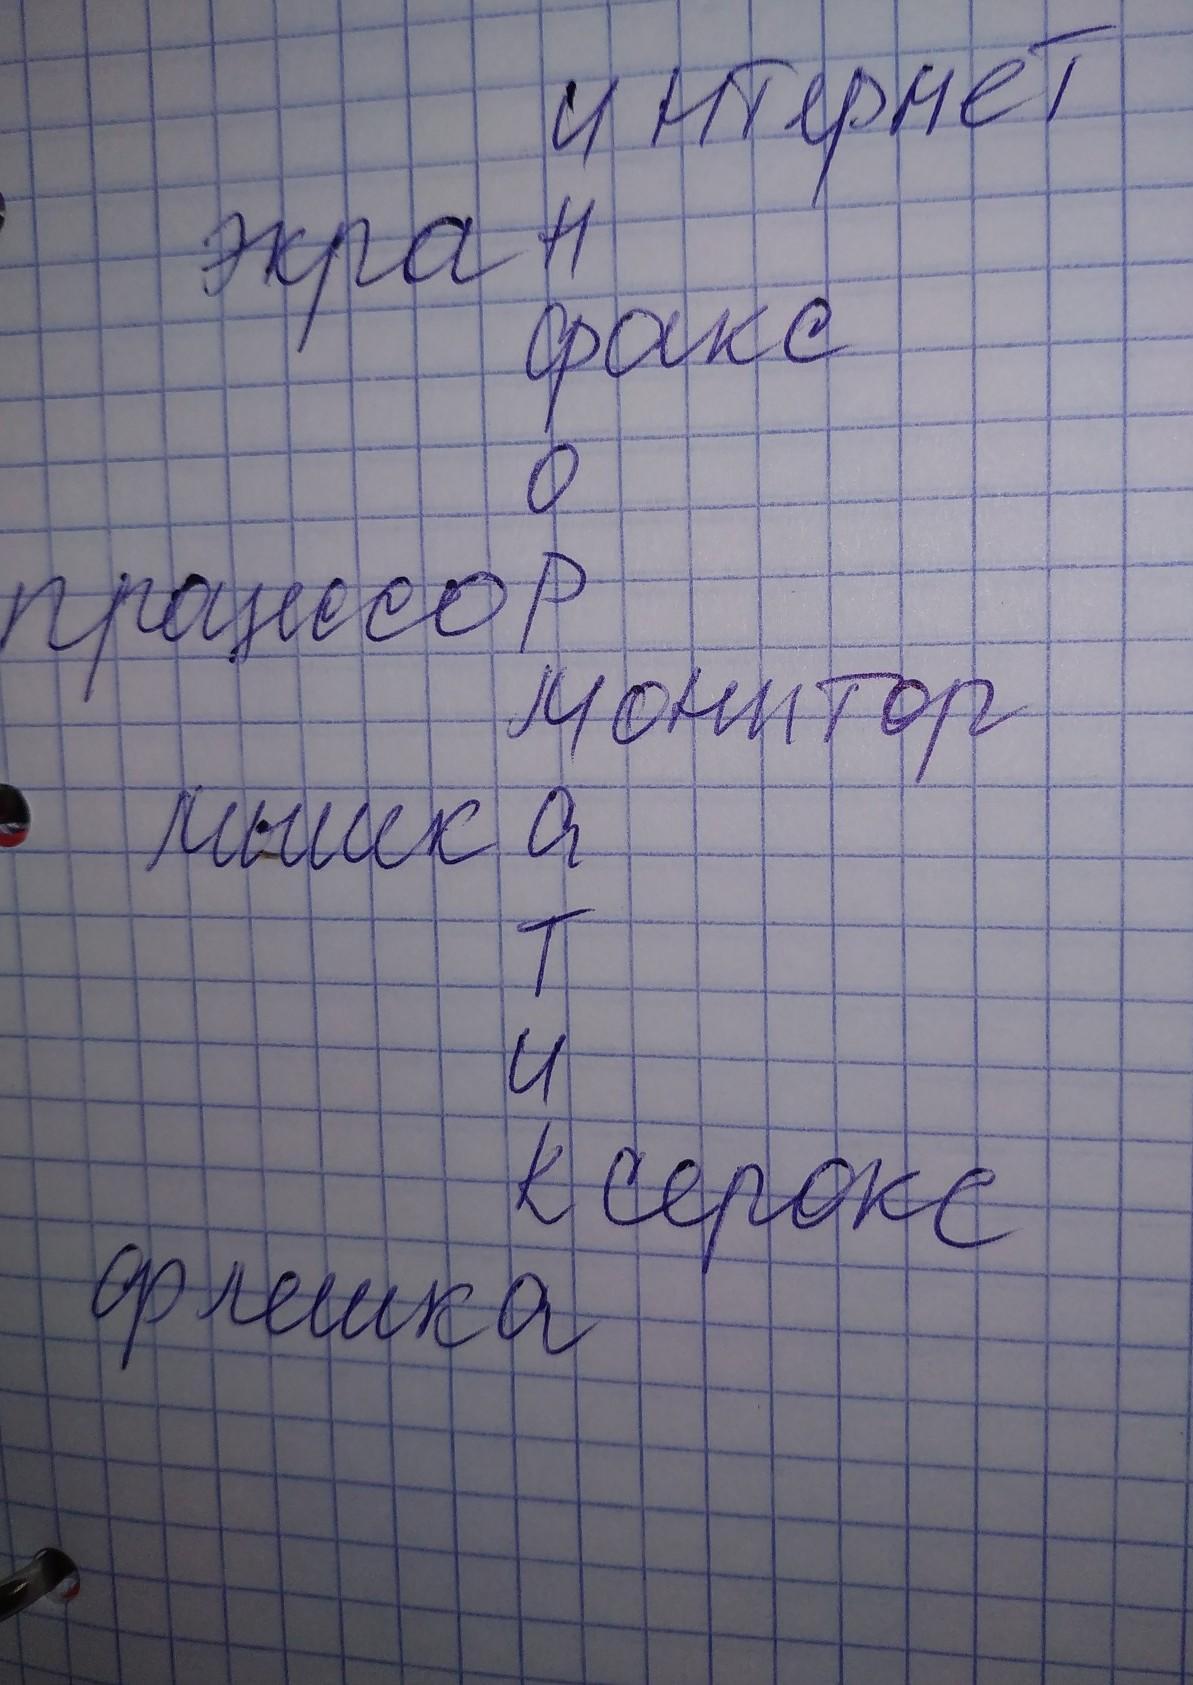 интернет
экран
факс
о
процессор
монитор
мышка
т
и
ксерокс
флешка